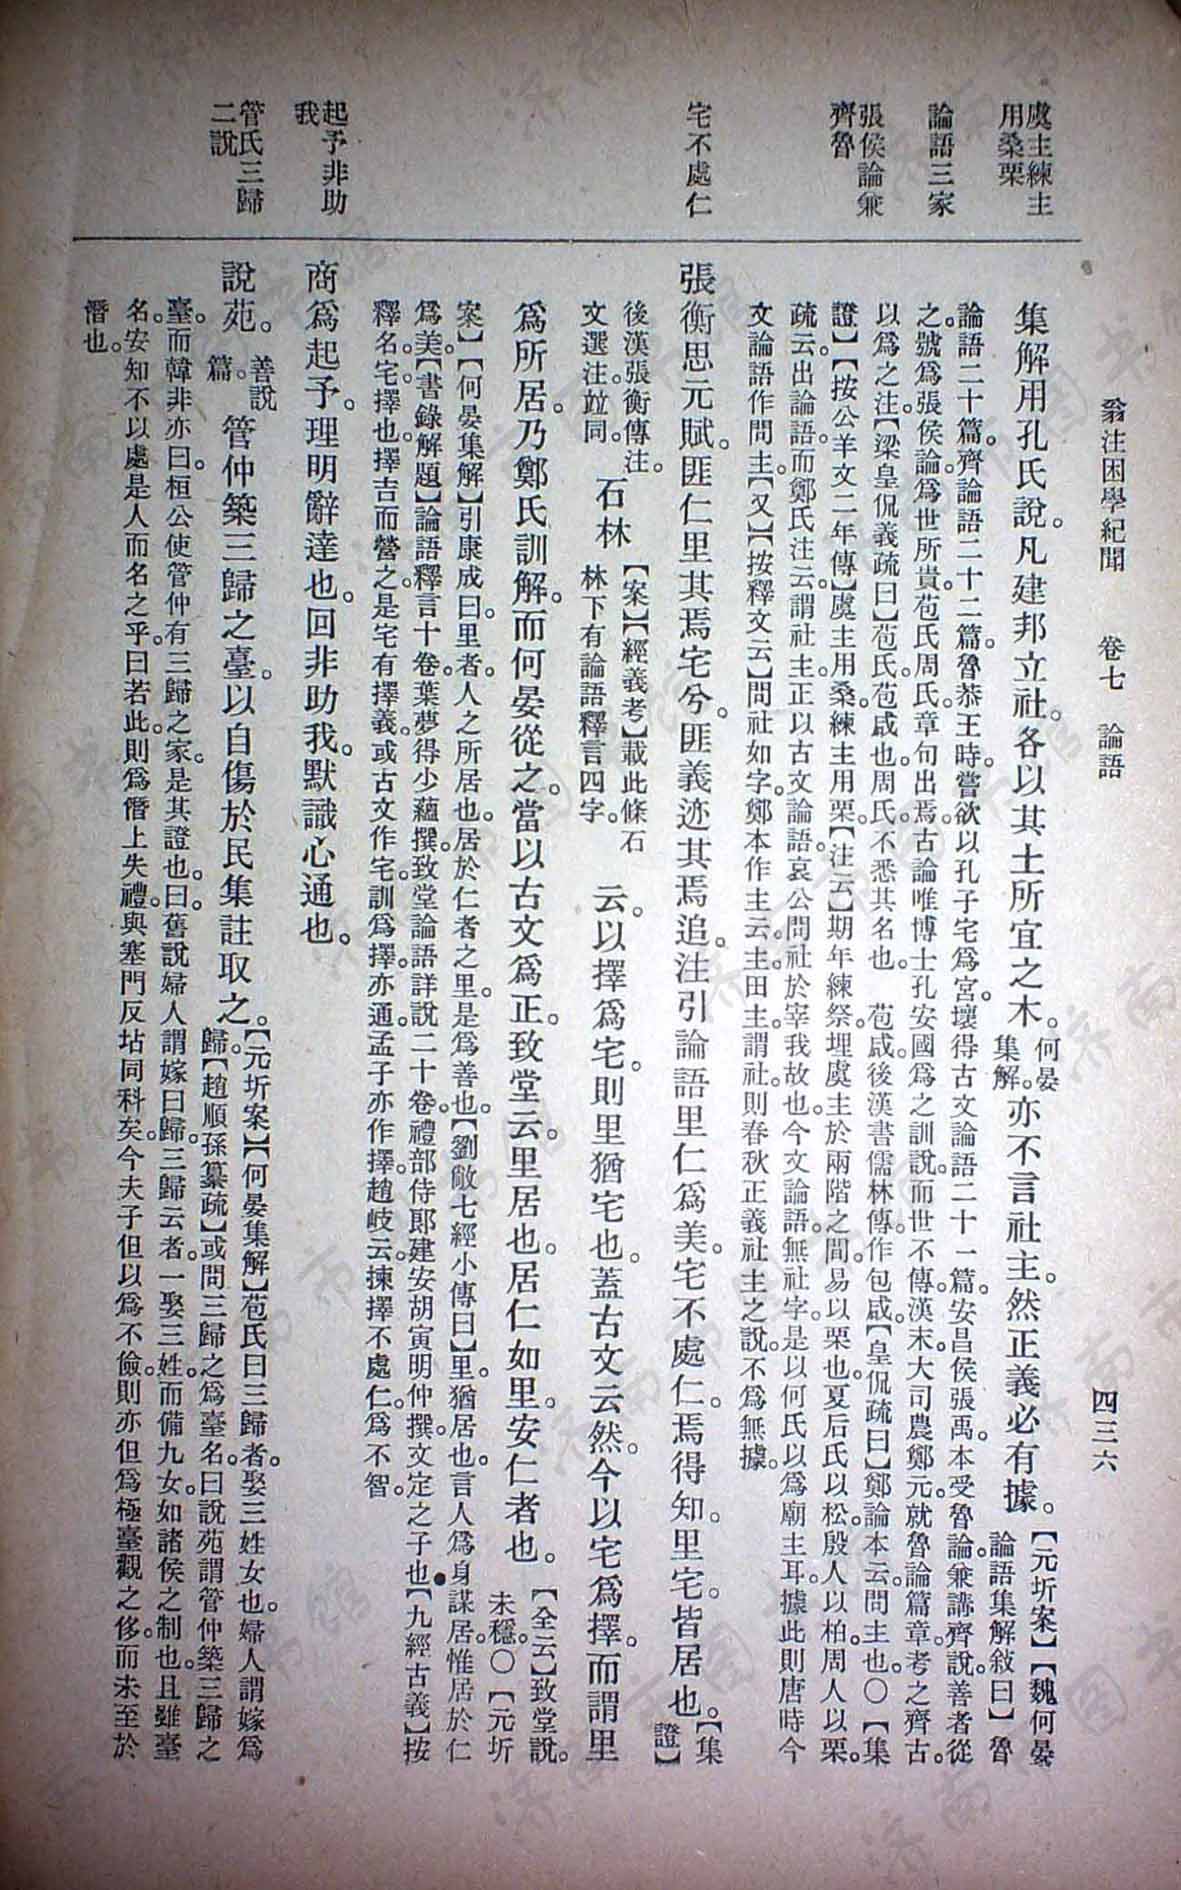 翁注困學紀聞　卷七　論語　四三六
虞主練主
用桑栗
論語三家
張侯論兼
齊魯
宅不處仁
起予非助
我
管氏三歸
二說
集解用孔氏說。凡建邦立社。各以其土所宜之木。何晏集解。亦不言社主。然正義必有據。【元圻案】【魏何晏論語集解敘曰】魯
論語二十篇。齊論語二十二篇。魯恭王時。嘗欲以孔子宅爲宮。壞得古文論語二十一篇。安昌侯張禹。本受魯論。兼講齊說。善者從
之。號爲張侯論。爲世所貴。苞氏周氏。章句出焉。古論唯博士孔安國爲之訓說。而世不傳。漢末。大司農鄭元。就魯論篇章。考之齊古。
以爲之注。【梁皇侃義疏曰】苞氏。苞咸也。周氏。不悉其名也。　苞咸。後漢書儒林傳作包咸。【皇侃疏曰】鄭論本云。問主也。〇【集
證】【按公羊文二年傳】虞主用桑。練主用栗。【注云】期年練祭。埋虞主於兩階之間。易以栗也。夏后氏以松。殷人以柏。周人以栗。
疏云。出論語。而鄭氏注云。謂社主。正以古文論語。哀公問社於宰我故也。今文論語。無社字。是以何氏以爲廟主耳。據此則唐時今
文論語作問主。【又】【按釋文云】問社如字。鄭本作主。云。主。田主。謂社。則春秋正義社主之說。不爲無據。
張衡思元賦。匪仁里其焉宅兮。匪義迹其焉追。注引論語里仁爲美。宅不處仁。焉得知。里宅皆居也。【集證】
後漢張衡傳注。文選注竝同。石林【案】【經義考】載此條石林下有論語釋言四字。云。以擇爲宅。則里猶宅也。蓋古文云然。今以宅爲擇。而謂里
爲所居。乃鄭氏訓解。而何晏從之。當以古文爲正。致堂云。里居也。居仁如里。安仁者也。【全云】致堂說。未穩。〇【元圻
案】【何晏集解】引康成曰。里者。人之所居也。居於仁者之里。是爲善也。【劉敞七經小傳曰】里。猶居也。言人爲身謀居。惟居於仁
爲美。【書錄解題】論語釋言十卷。葉夢得少蘊撰。致堂論語詳說二十卷。禮部侍郎建安胡寅明仲撰。文定之子也。【九經古義】按
釋名。宅。擇也。擇吉而營之。是宅有擇義。或古文作宅。訓爲擇。亦通。孟子亦作擇。趙岐云。揀擇不處仁。爲不智。
商爲起予。理明辭達也。回非助我。默識心通也。
說苑。善說篇。管仲築三歸之臺。以自傷於民集註取之。【元圻案】【何晏集解】苞氏曰三歸者。娶三姓女也。婦人謂嫁爲
歸。【趙順孫纂疏】或問三歸之爲臺名。曰說苑謂管仲築三歸之
臺。而韓非亦曰。桓公使管仲有三歸之家。是其證也。曰。舊說婦人謂嫁曰歸。三歸云者。一娶三姓。而備九女。如諸侯之制也。且雖臺
名。安知不以處是人而名之乎。曰若此。則爲僭上失禮。與塞門反坫同科矣。今夫子但以爲不儉。則亦但爲極臺觀之侈。而未至於
僭也。